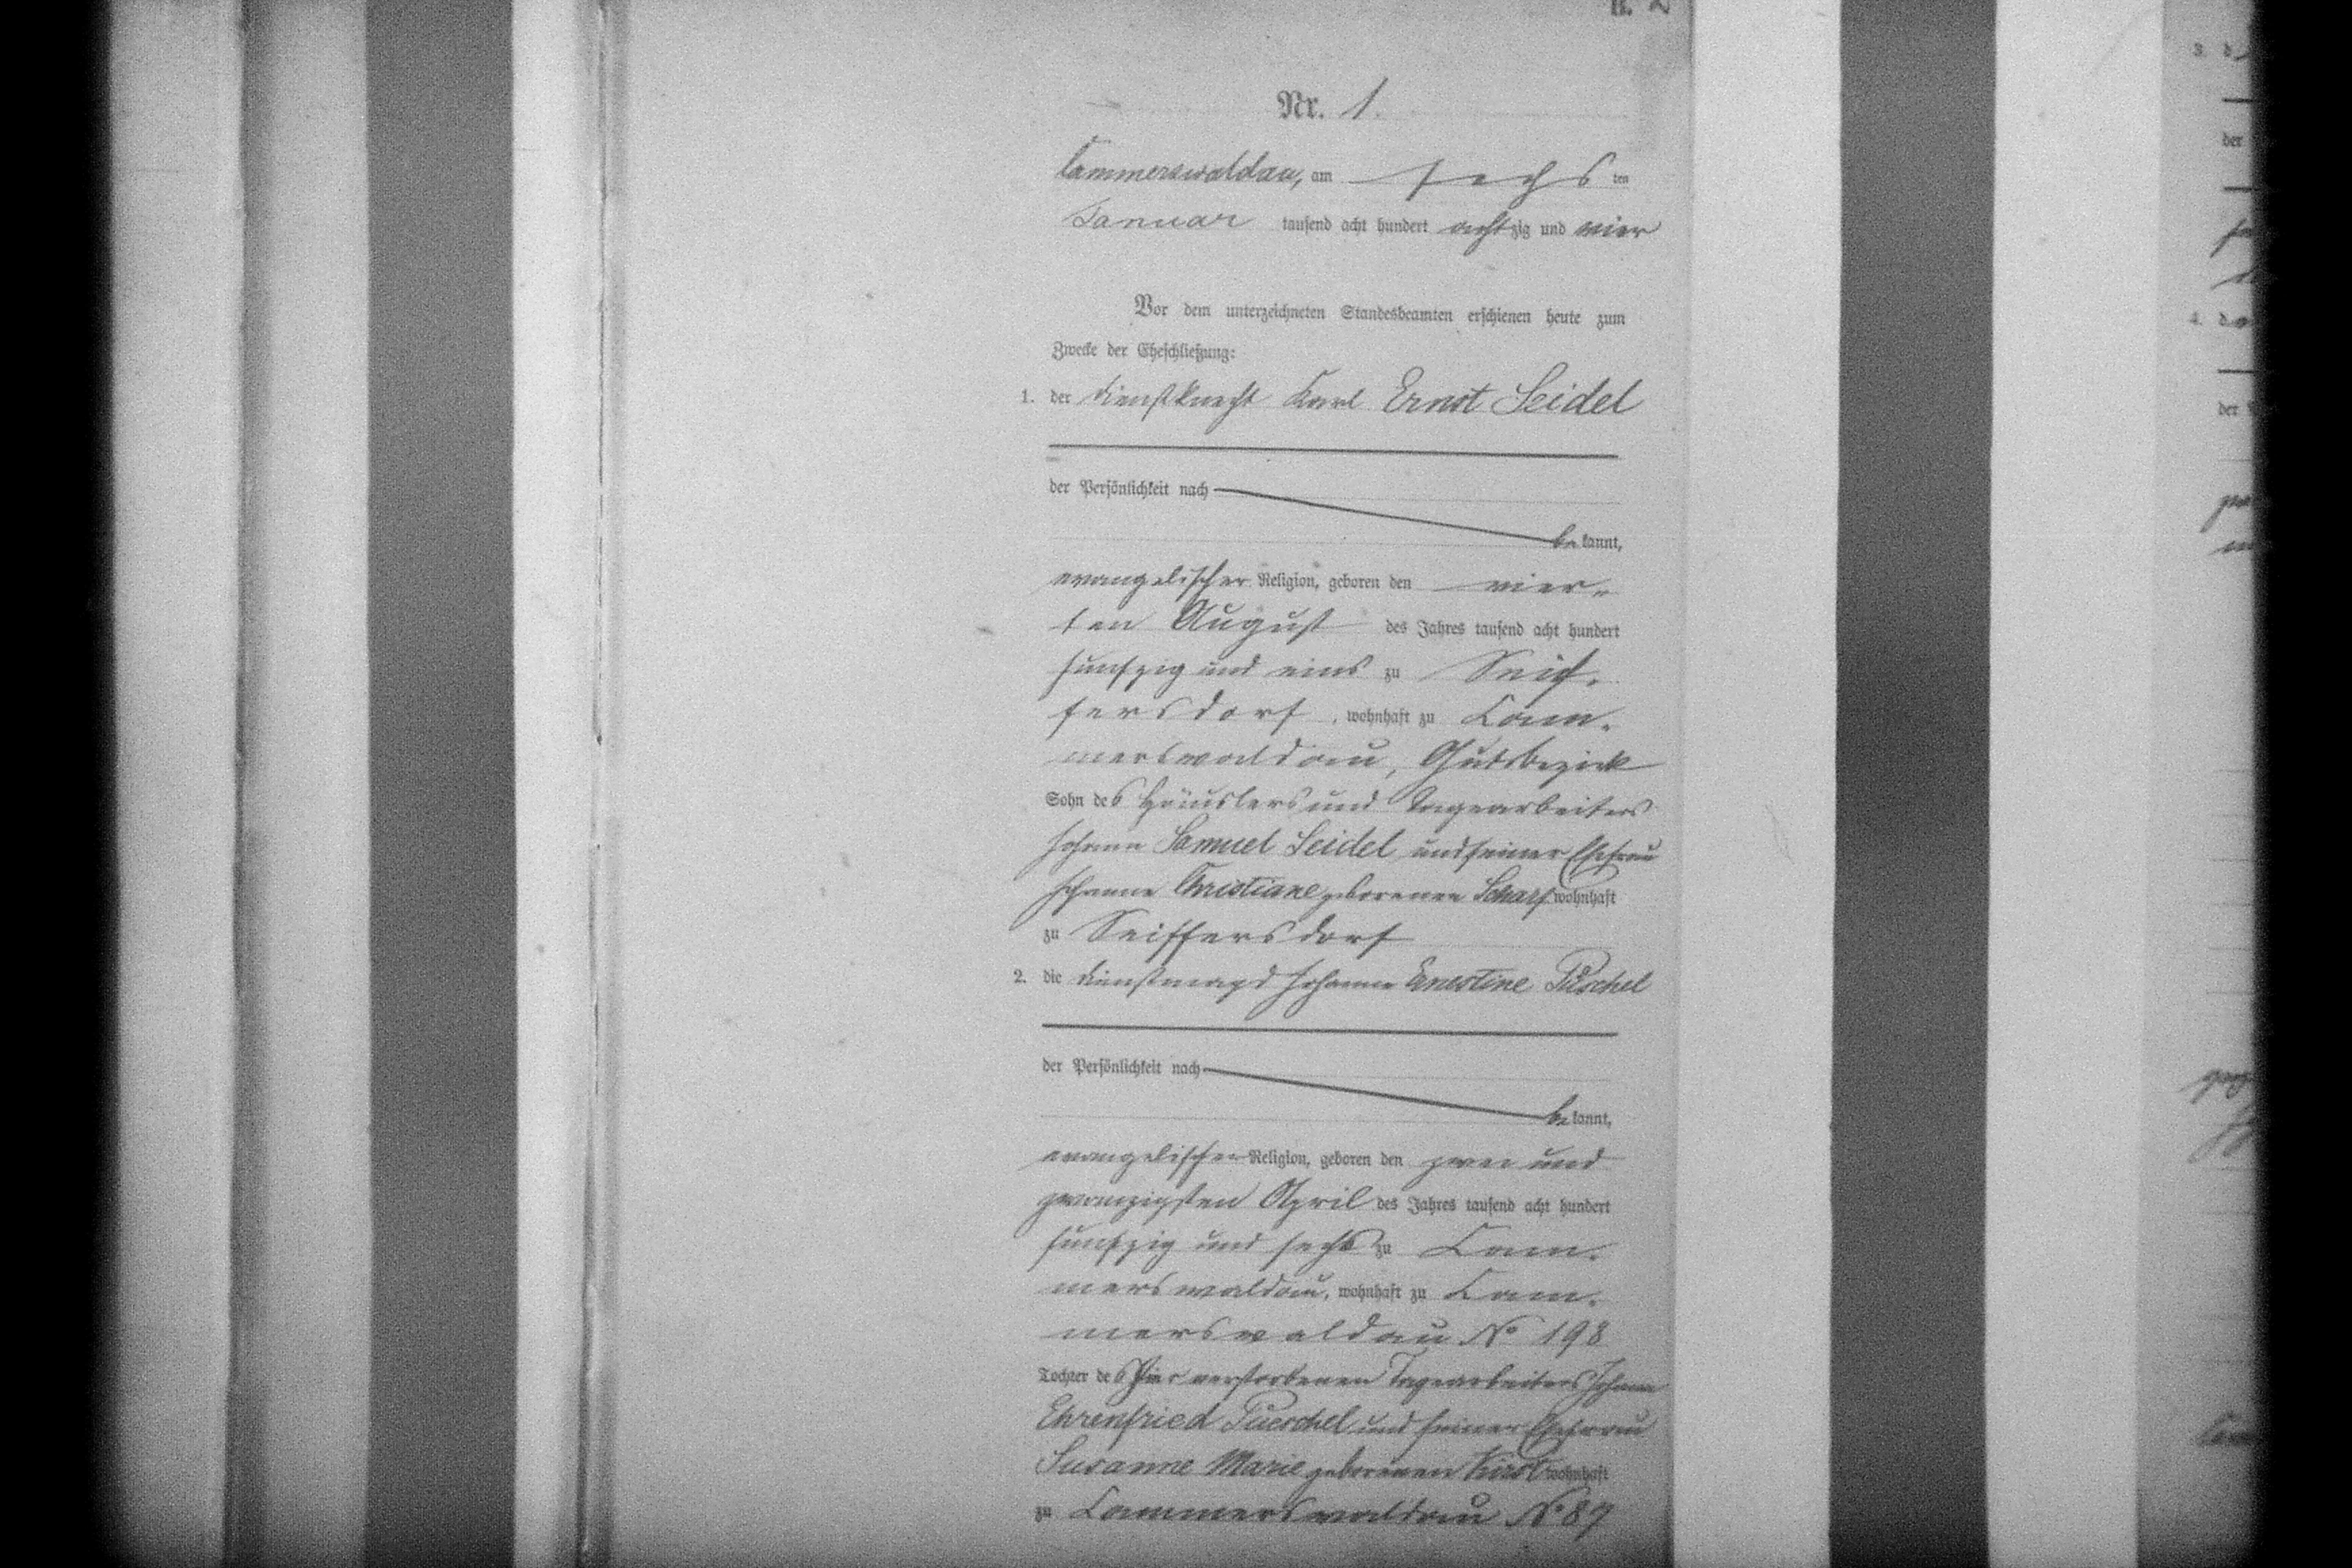 Nr. 1.
Cammerswaldau, am sechs ten
Januar tausend acht hundert achtzig und vier
Vor dem unterzeichneten Standesbeamten erschienen heute zum
Zwecke der Eheschließung:
1. der Dienstknecht Karl Ernst Seidel
der Persönlichkeit nach
be kannt,
evangelischer Religion, geboren den vier-
ten August des Jahres tausend acht hundert
fünfzig und eins zu Seif-
fersdorf, wohnhaft zu Cam-
merswaldau, Gutsbezirk
Sohn des Häuslers und Tagearbeiters
Johann Samuel Seidel und seiner Ehefrau
Johanne Christiane geborenen Scharf wohnhaft
zu Seiffersdorf
2. die Dienstmagd Johanne Ernestine Püschel
der Persönlichkeit nach
be kannt,
evangelischer Religion, geboren den zwei und
zwanzigsten April des Jahres tausend acht hundert
fünfzig und sechs zu Cam-
merswaldau, wohnhaft zu Cam-
merswaldau No 198
Tochter des hier verstorbenen Tagearbeiters Johann
Ehrenfried Pueschel und seiner Ehefrau
Susanne Marie geborenen Kirst wohnhaft
zu Cammerswaldau No 87
3. d
der
4. d
der